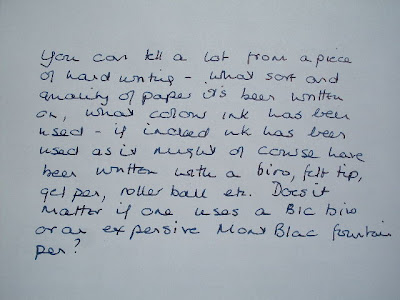 You can tell a lot from a piece
of hand writing - what sort and
quality of paper it's been written
on, what colour ink has been
used - if indeed ink has been
used as it might of course have
been written with a biro, felt tip,
gel pen, roller ball etc. Does it
matter if one uses a Bic biro
or an expensive Mont Blac fountain
pen?